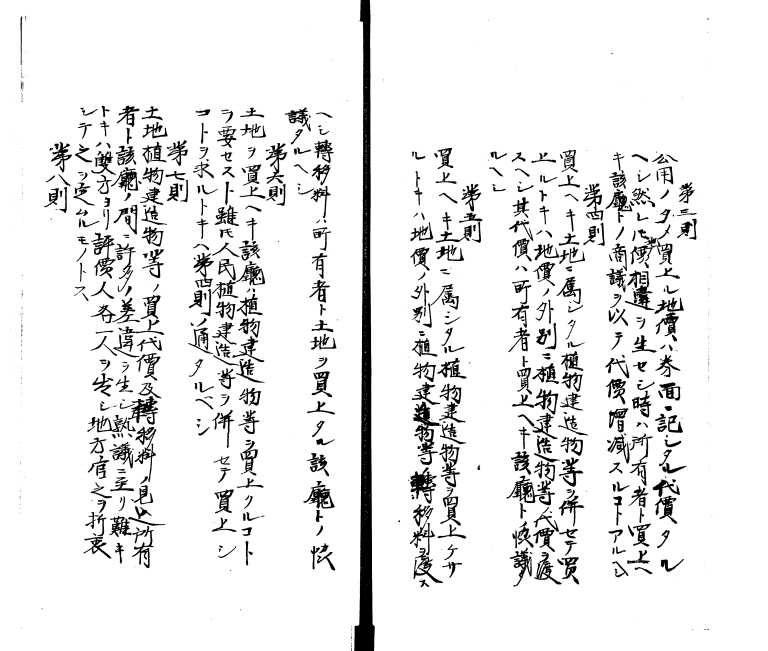 第三則
公用ノタメ買上ル地價ハ券面ニ記シタル代價タル
ヘシ然レ𪜈地價相違ヲ生セシ時ハ所有者ト買上ヘ
キ該廳トノ商議ヲ以テ代價増减スルコトアルヘシ
第四則
買上ヘキ土地ニ属シタル植物建造物等ヲ併セテ買
上ルトキハ地價ノ外別ニ植物建造物等代價ヲ渡
スヘシ其代價ハ所有者ト買上ヘキ該廳ト熟議タ
ルヘシ
第五則
買上ヘキ土地ニ属シタル植物建造物等ヲ買上ケサ
ルトキハ地價ノ外別ニ植物建造物等ノ轉移料ヲ渡ス
ヘシ轉移料ハ所有者ト土地ヲ買上タル該廳トノ熟
議タルヘシ
第六則
土地ヲ買上ヘキ該廳ハ植物建造物等ヲ買上クルコト
ヲ要セスト雖𪜈人民植物建造等ヲ併セテ買上シ
コトヲ求ルトキハ第四則ノ通タルベシ
第七則
土地植物建造物等ノ買上代價及轉移料ノ見込所有
者ト該廳ノ間ニ許多ノ差違ヲ生シ熟議ニ至リ難キ
トキハ雙方ヨリ評價人各一人ヲ出シ地方官之ヲ折衷
シテ之ヲ定ムルモノトス
第八則